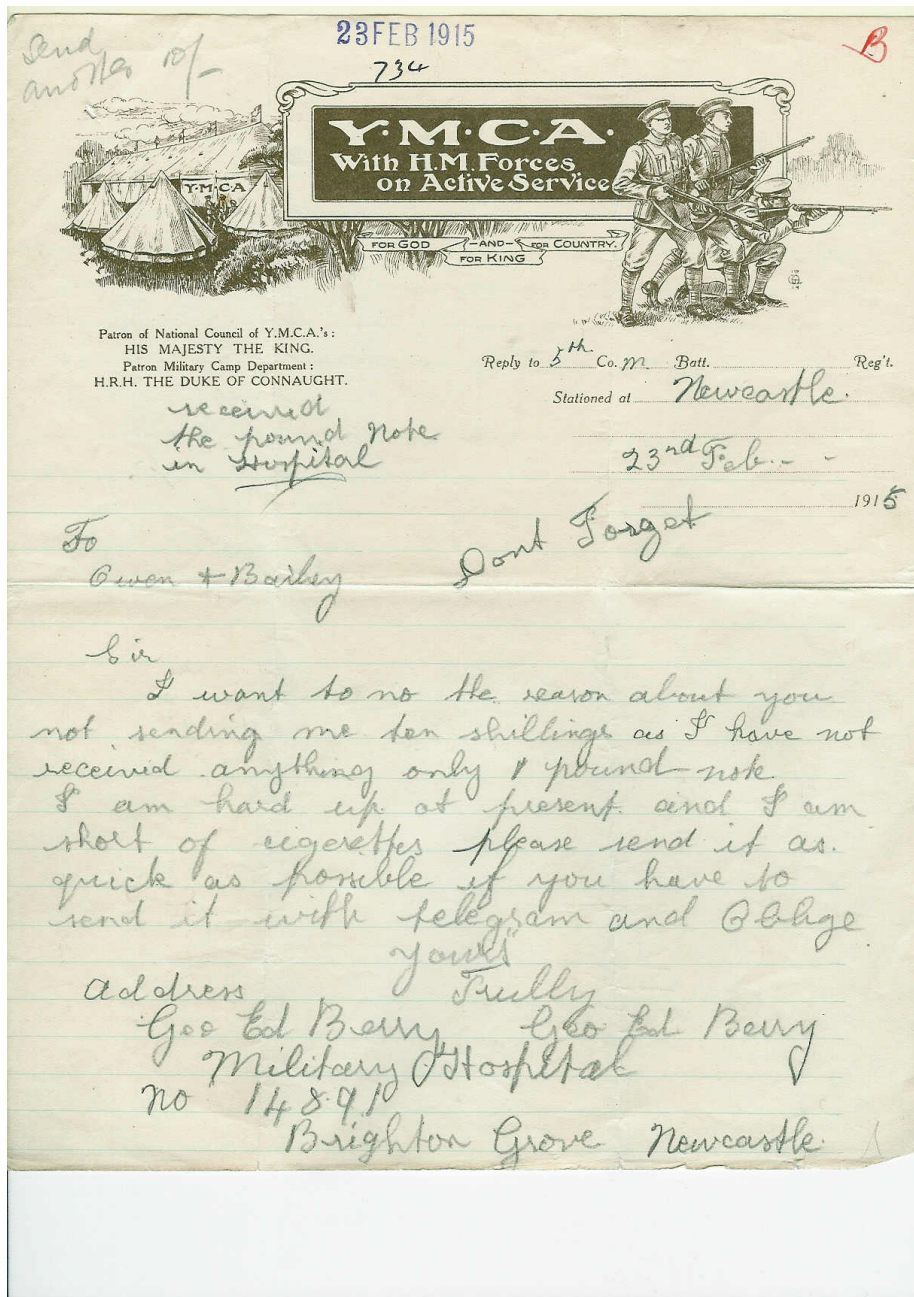 Send
another 10/-
23 FEB 1915
734
B
Y.M.C.A.
With H.M. Forces
on Active Service
Y.M.C.A
FOR GOD -AND- FOR COUNTRY.
FOR KING
Patron of National Council of Y.M.C.A.'s:
HIS MAJESTY THE KING.
Patron Military Camp Department:
H.R.H. THE DUKE OF CONNAUGHT.
Reply to 5th Co. M Batt. Reg't.
Stationed at Newcastle.
23rd Feb. - -
1915
received
the pound Note
in Hospital
Dont Forget
To
Owen + Bailey
Sir
I want to no the reason about you
not sending me ten shillings as I have not
received anything only 1 pound note
I am hard up at present and I am
short of cigerettes please send it as.
quick as possible if you have to
send it with telegram and Oblige
yours"
Trully
Address
Geo Ed Berry Geo Ed Berry
Military Hospital
No 14891
Brighton Grove Newcastle.